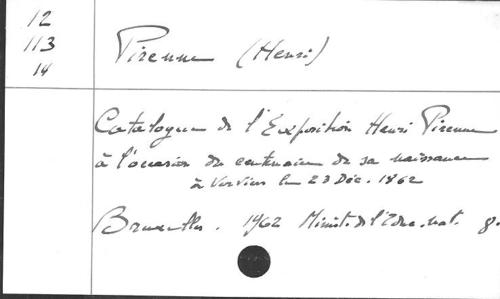 12
113
14
Pirenne (Henri)
Catalogue de l'Exposition Henri Pirenne
à l'occasion du centenaire de sa naissance
à Verviers le 23 Déc. 1862
Bruxelles. 1962 Minist. de l'Educ. nat. 8.